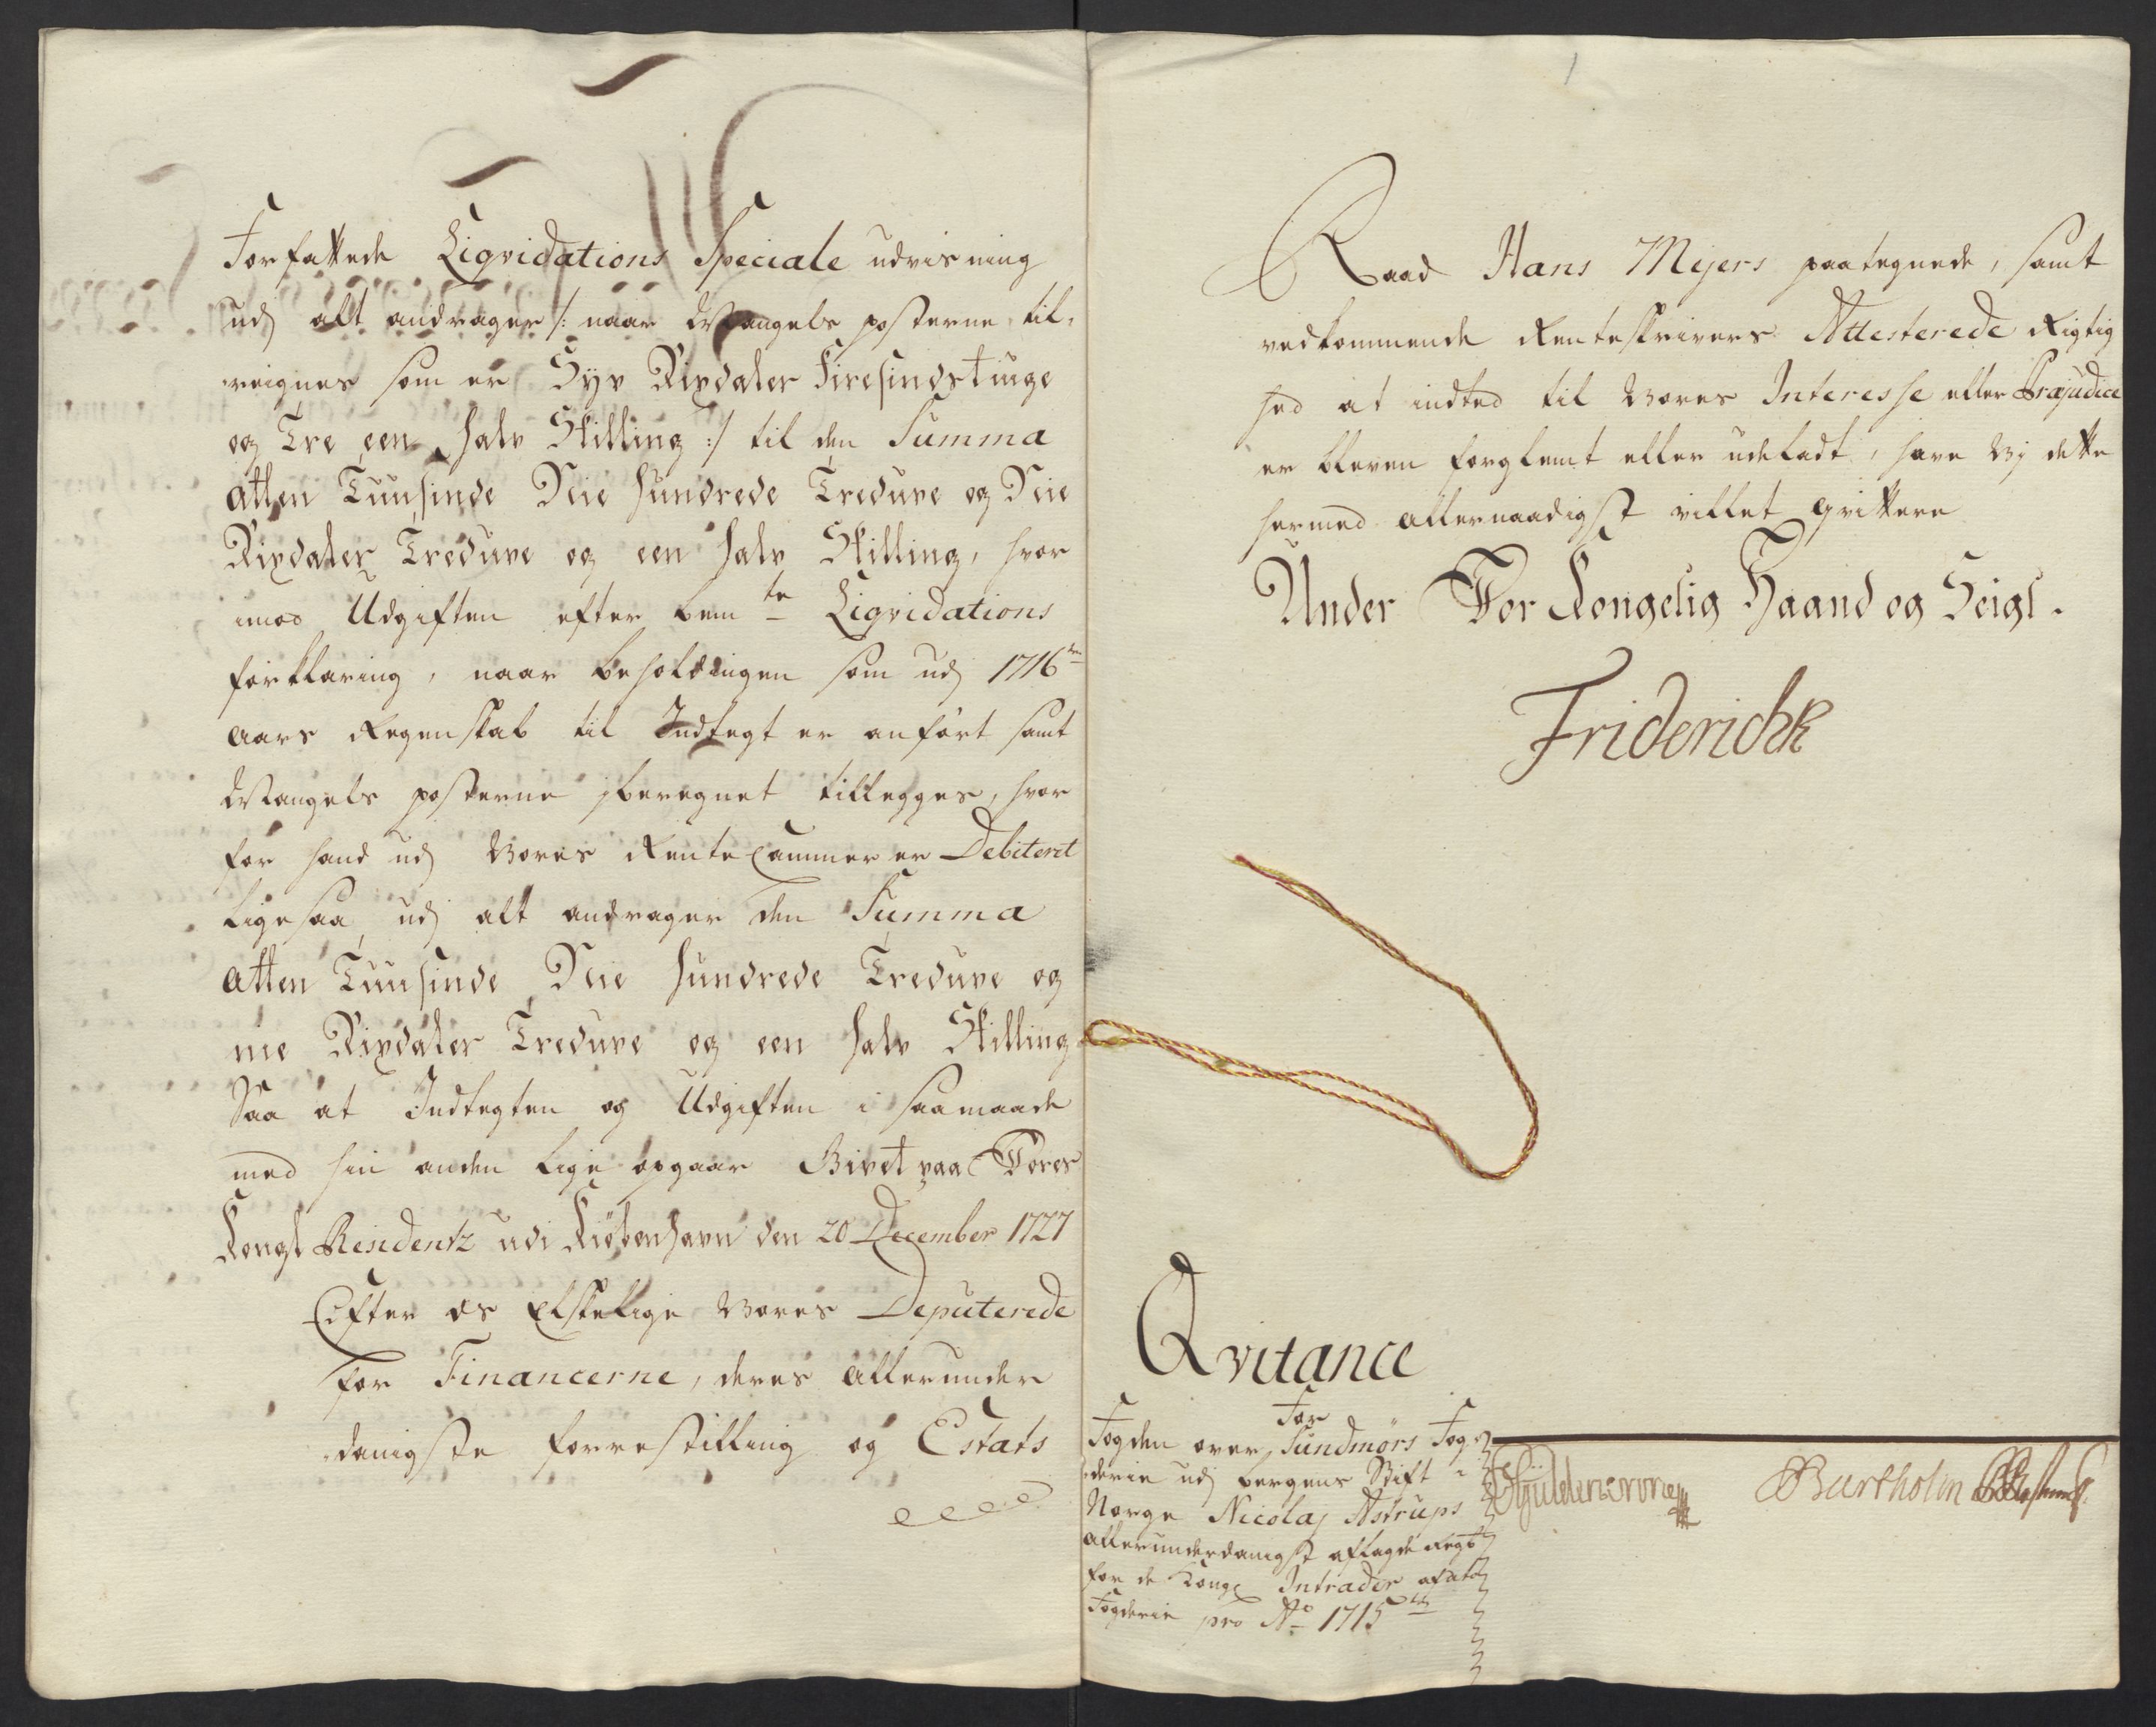 Forfattede Liqvidations Speciale udvisning
udj alt andrager /: naar Mangels posterne til,
reignes som er Syv Rixdaler Firesindstiuge
og Tre een halv Skilling :/ til den Summa
Atten Tuusinde Nie hundrede Tredive og Nie
Rixdaler Tredive og een halv Skilling, hvor
imod Udgiften efter bem.te Liqvidations
forklaring, naar beholdningen som udj 1716.de
aars Regenskab til Indtegt er anført samt
Mangels posterne jberegnet tillegges, hvor
for hand udj Vores Rente Cammer er Debiteret
ligesaa udj alt andrager den Summa
Atten Tuusinde Nie hundrede Tredive og
nie Rixdaler Tredive og een halv Skilling
Saa at Indtegten og Udgiften i saamaade
med hin anden lige opgaar Givet paa Vores
Kongl Residentz udi Kiöbenhavn den 20 December 1727
Efter os Elskelige Vores Deputerede
for Financerne, deres allerunder
danigste forrestilling og Estats
1
Raad Hans Mejers paategnede, samt
vedkommende Renteskrivers Attesterede Rigtig
hed at indted til Vores Interesse eller Præjudice
er bleven forglemt eller udeladt, have Vj dette
hermed allernaadigst villet qvittere
Under Vor Kongelig Haand og Seigl.
Friderich R
Qvitance
For
Fogden over Sundmörs Fog,
derie udj bergens Stift i
Norge Nicolaj Astrups
allerunderdanigst aflagde Regsb
for de Kongl Intrader af atd
Fogderie pro Ao 1715 de
CGyldencrone
Bartholin